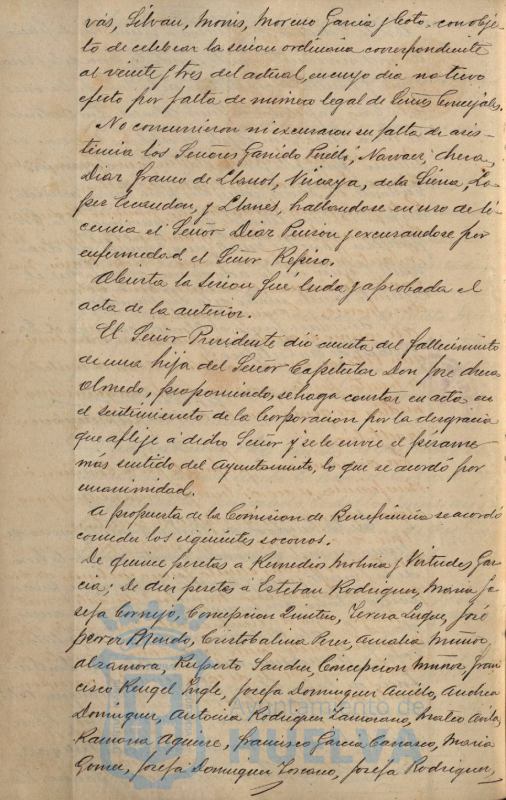 vás, Silvan, Monis, Moreno Garcia y Coto, con obje-
to de celebrar la sesion ordinaria correspondiente
al veinte y tres del actual, en cuyo dia no tuvo
efecto por falta de número legal de Señores Concejales.
No concurrieron ni excusaron su falta de asis-
tencia los Señores Garrido Perelló, Narvaez, Checa,
Diaz Franco de Llanos, Vizcaya, de la Sierra, Lo-
pez y Llanes, hallandose en uso de li-
cencia el Señor Diaz Pinzon y excusandose por
enfermedad el Señor Repiso.
Abierta la sesion fué leida y aprobada el
acta de la anterior.
El Señor Presidente dió cuenta del fallecimiento
de una hija del Señor Capitular Don José Checa
Olmedo, proponiendo, se haga constar en acta en
el sentimiento de la Corporacion por la desgracia
que aflije a dicho Señor y se le envie el pésame
más sentido del Ayuntamiento, lo que se acordó por
unanimidad.
A propuesta de la Comision de Beneficencia se acordó
conceder los siguientes socorros.
De quince pesetas a Remedios Molina y Virtudes Gar-
cia; De diez pesetas a Esteban Rodriguez, Maria Jo-
sefa Cornejo, Concepcion Quintero, Teresa Luque, José
Ferrer Mendo, Cristobalina Perez, Amalia Muñoz
Alzamora, Ruperto Sanchez, Concepcion Muñoz, Fran-
cisco Rengel Ingle, Josefa Dominguez, Andrea
Dominguez, Antonia Rodriguez Zamorano, Mateo Avila,
Ramona Aguirre, Francisco Garcia Carrasco, Maria
Gomez, Josefa Dominguez Toscano, Josefa Rodriguez,
Ayuntamiento de
HUELVA